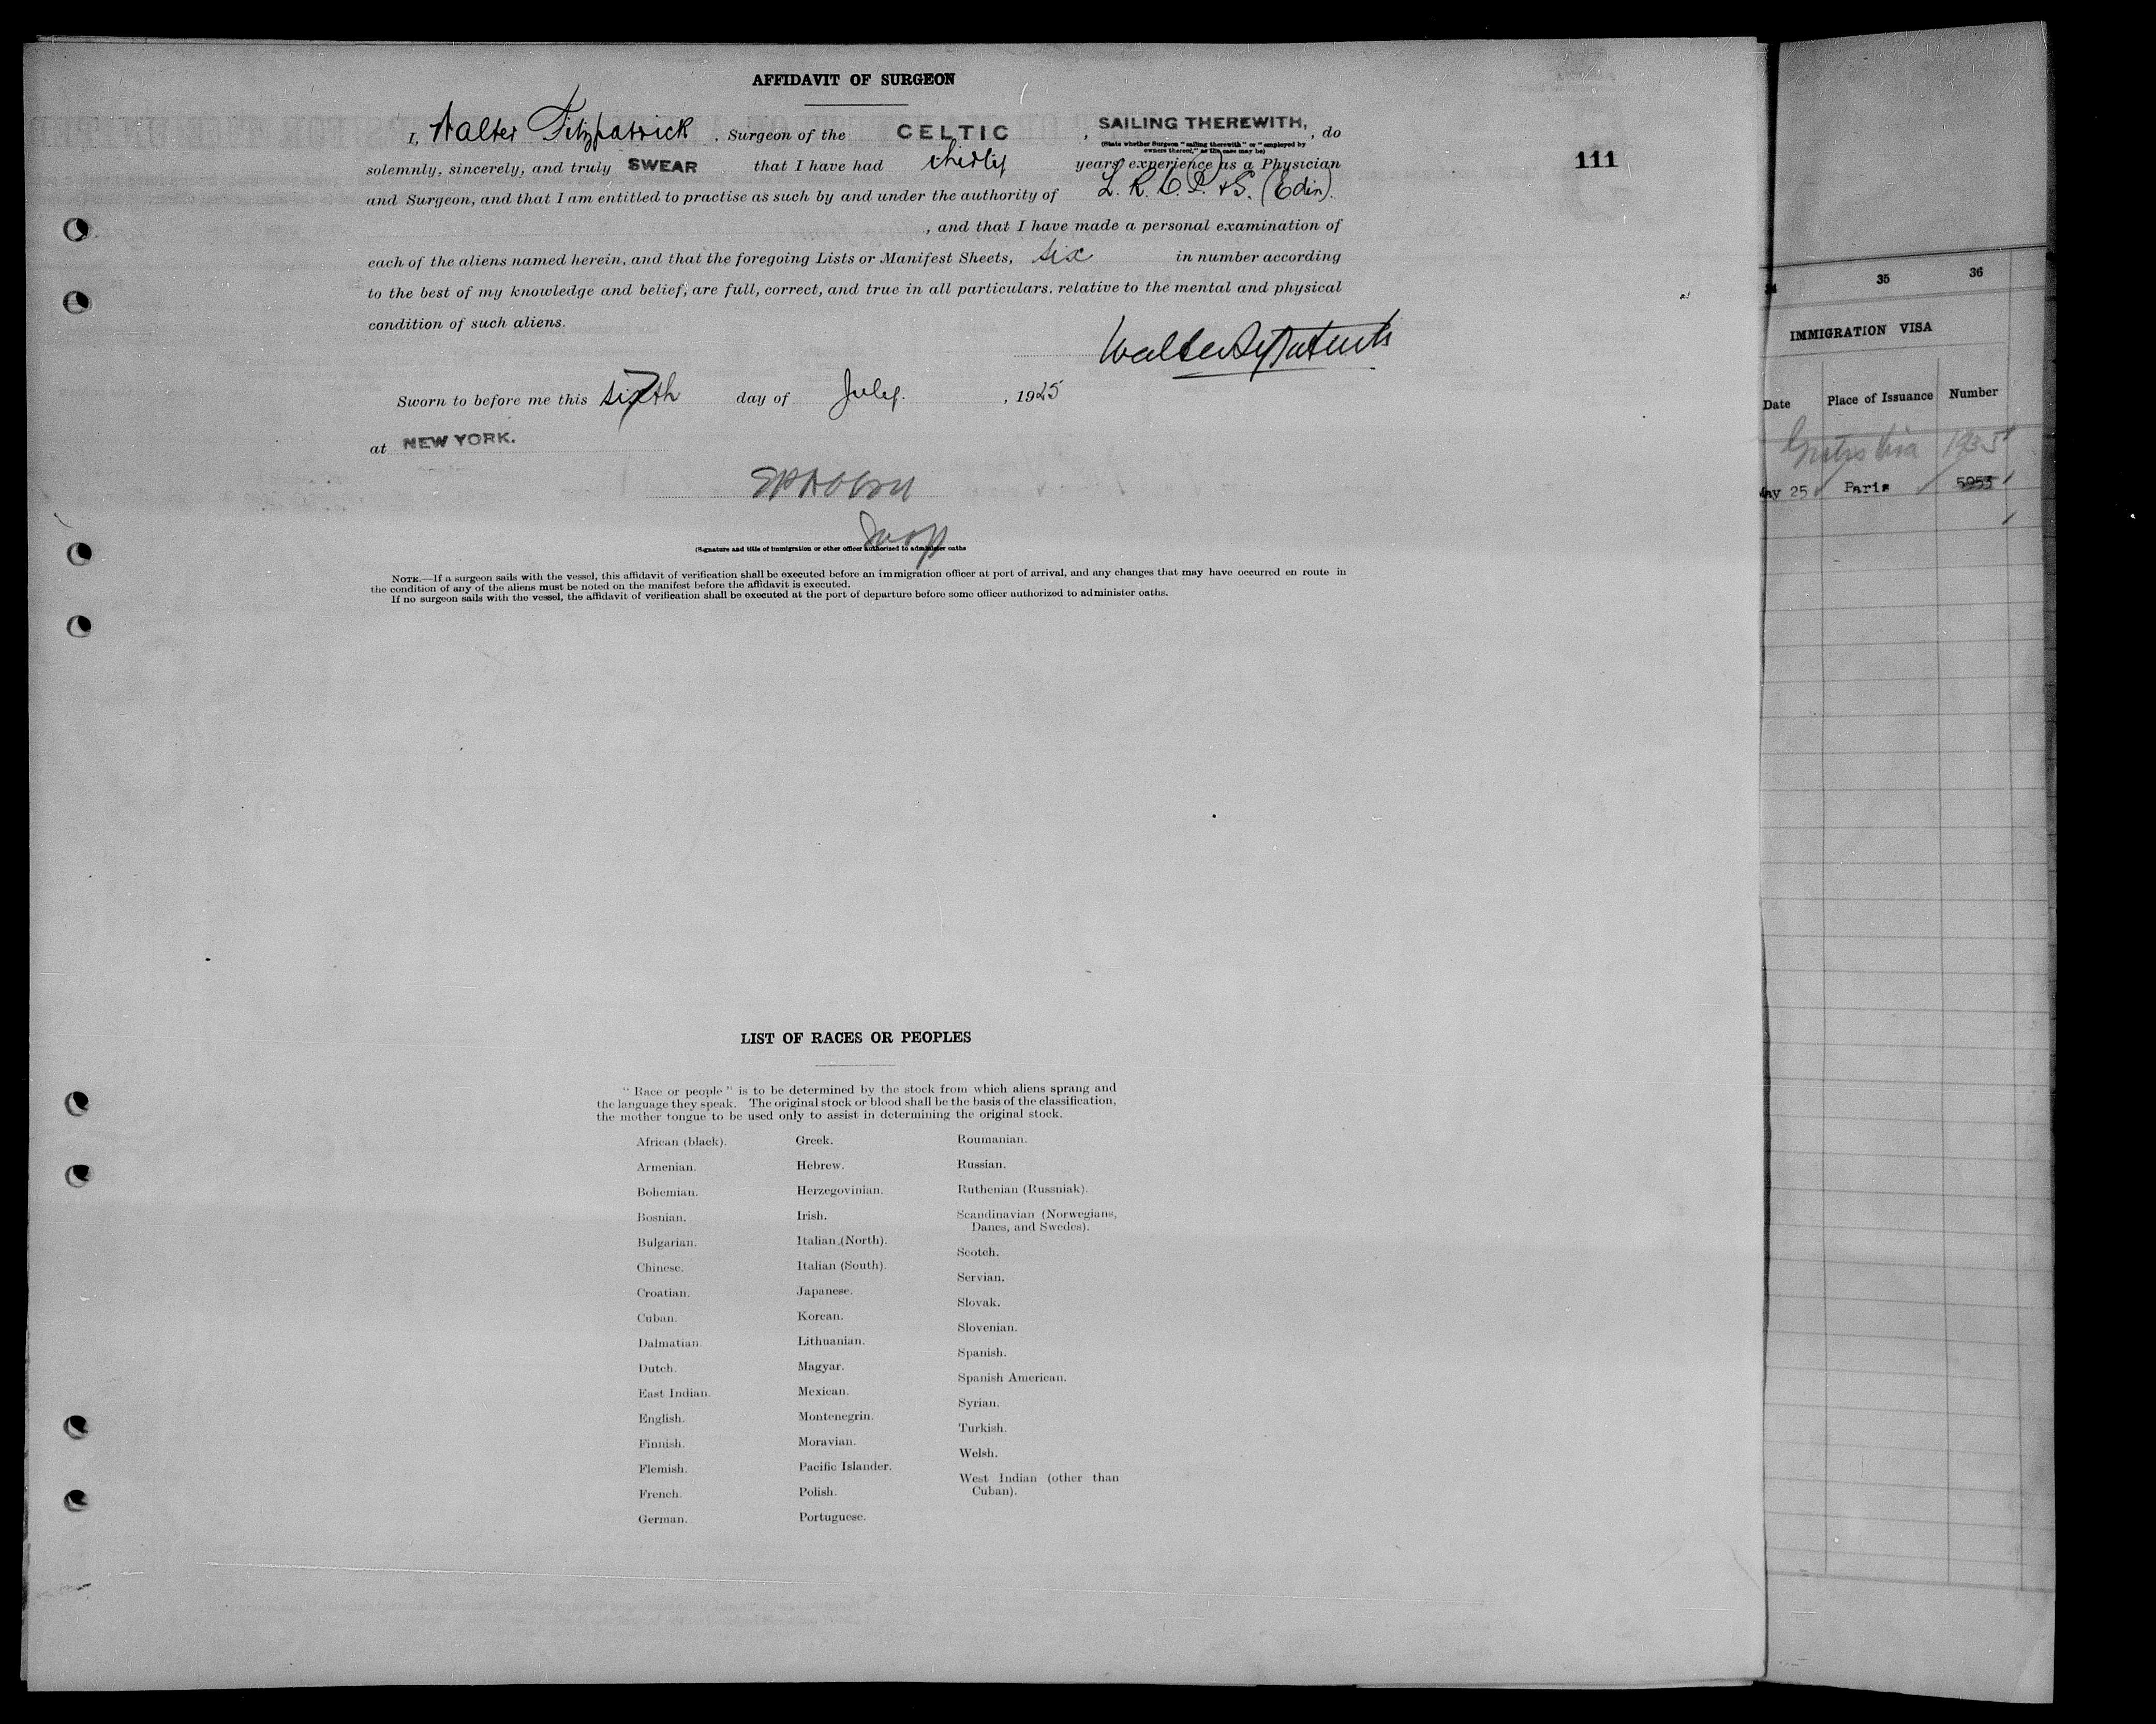 AFFIDAVIT OF SURGEON
I, Walter Fitzpatrick, Surgeon of the CELTIC, SAILING THEREWITH, do
(State whether Surgeon "sailing therewith" or "employed by
owners thereof," as the case may be)
111
solemnly, sincerely, and truly SWEAR that I have had thirty years experience as a Physician
and Surgeon, and that I am entitled to practise as such by and under the authority of L. R. C. P. & S. (Edin).
, and that I have made a personal examination of
each of the aliens named herein, and that the foregoing Lists or Manifest Sheets, six in number according
to the best of my knowledge and belief, are full, correct, and true in all particulars. relative to the mental and physical
condition of such aliens.
Walter Fitzpatrick
Sworn to before me this sixth 7 day of July. , 1925
at NEW YORK.
(Signature and title of immigration or other officer authorized to administer oaths
NOTE.—If a surgeon sails with the vessel, this affidavit of verification shall be executed before an immigration officer at port of arrival, and any changes that may have occurred en route in
the condition of any of the aliens must be noted on the manifest before the affidavit is executed.
If no surgeon sails with the vessel, the affidavit of verification shall be executed at the port of departure before some officer authorized to administer oaths.
LIST OF RACES OR PEOPLES
"Race or people" is to be determined by the stock from which aliens sprang and
the language they speak. The original stock or blood shall be the basis of the classification,
the mother tongue to be used only to assist in determining the original stock.
African (black).
Armenian.
Bohemian.
Bosnian.
Bulgarian.
Chinese.
Croatian.
Cuban.
Dalmatian.
Dutch.
East Indian.
English.
Finnish.
Flemish.
French.
German.
Greek.
Hebrew.
Herzegovinian.
Irish.
Italian (North).
Italian (South).
Japanese.
Korean.
Lithuanian.
Magyar.
Mexican.
Montenegrin.
Moravian.
Pacific Islander.
Polish.
Portuguese.
Roumanian.
Russian.
Ruthenian (Russniak).
Scandinavian (Norwegians,
Danes, and Swedes).
Scotch.
Servian.
Slovak.
Slovenian.
Spanish.
Spanish American.
Syrian.
Turkish.
Welsh.
West Indian (other than
Cuban).
35 36
IMMIGRATION VISA
Date Place of Issuance Number
Visa 1935
May 25 Paris 5953